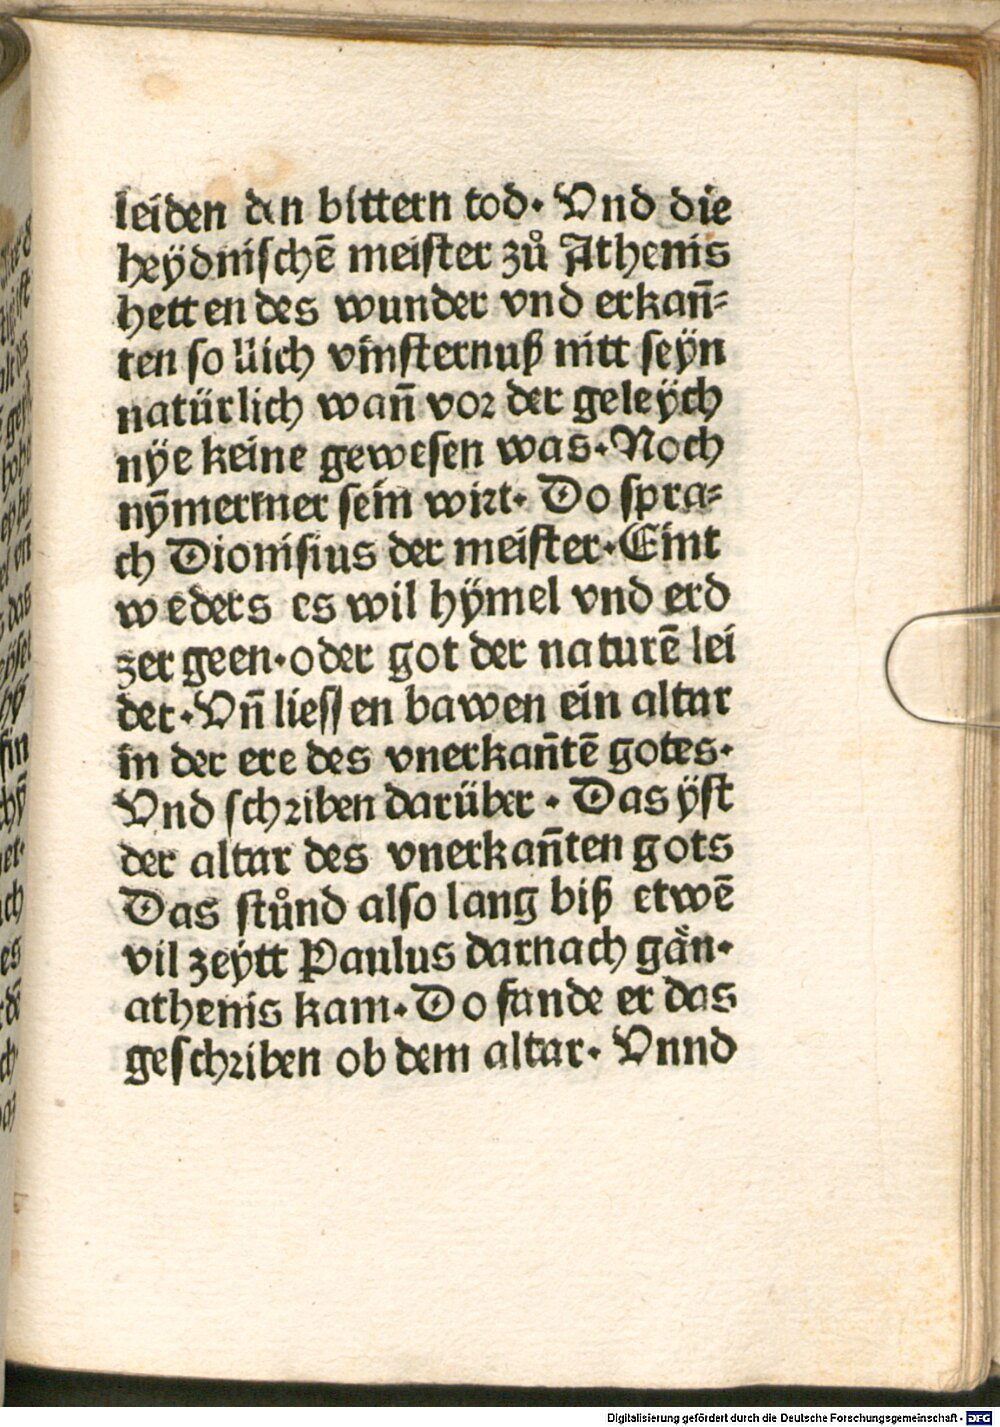 leiden den bittern tod· Vnd die
heÿdniſchē meiſter zů Athenis
hetten des wunder vnd erkañ⸗
ten so lich vinſternuß nitt ſeÿn
natürlich wañ vor der geleÿch
nÿe keine geweſen was·Noch
nȳmermer ſein wirt· Do ſpra⸗
ch Dioniſius der meiſter·Eint
weders es wil hÿmel vnd erd
zer geen·oder got der naturē lei
det·Vñ lieſſen bawen ein altar
in der ere des vnerkañtē gotes·
Vnd ſchriben darüber · Das ÿſt
der altar des vnerkañten gots
Das ſtůnd alſo lang biß etwē
vil zeÿtt Paulus darnach gän·
athenis kam·Do fande er das
geſchriben ob dem altar· Vnnd
Digitalisierung gefördert durch die Deutsche Forschungsgemeinschaft - DFG